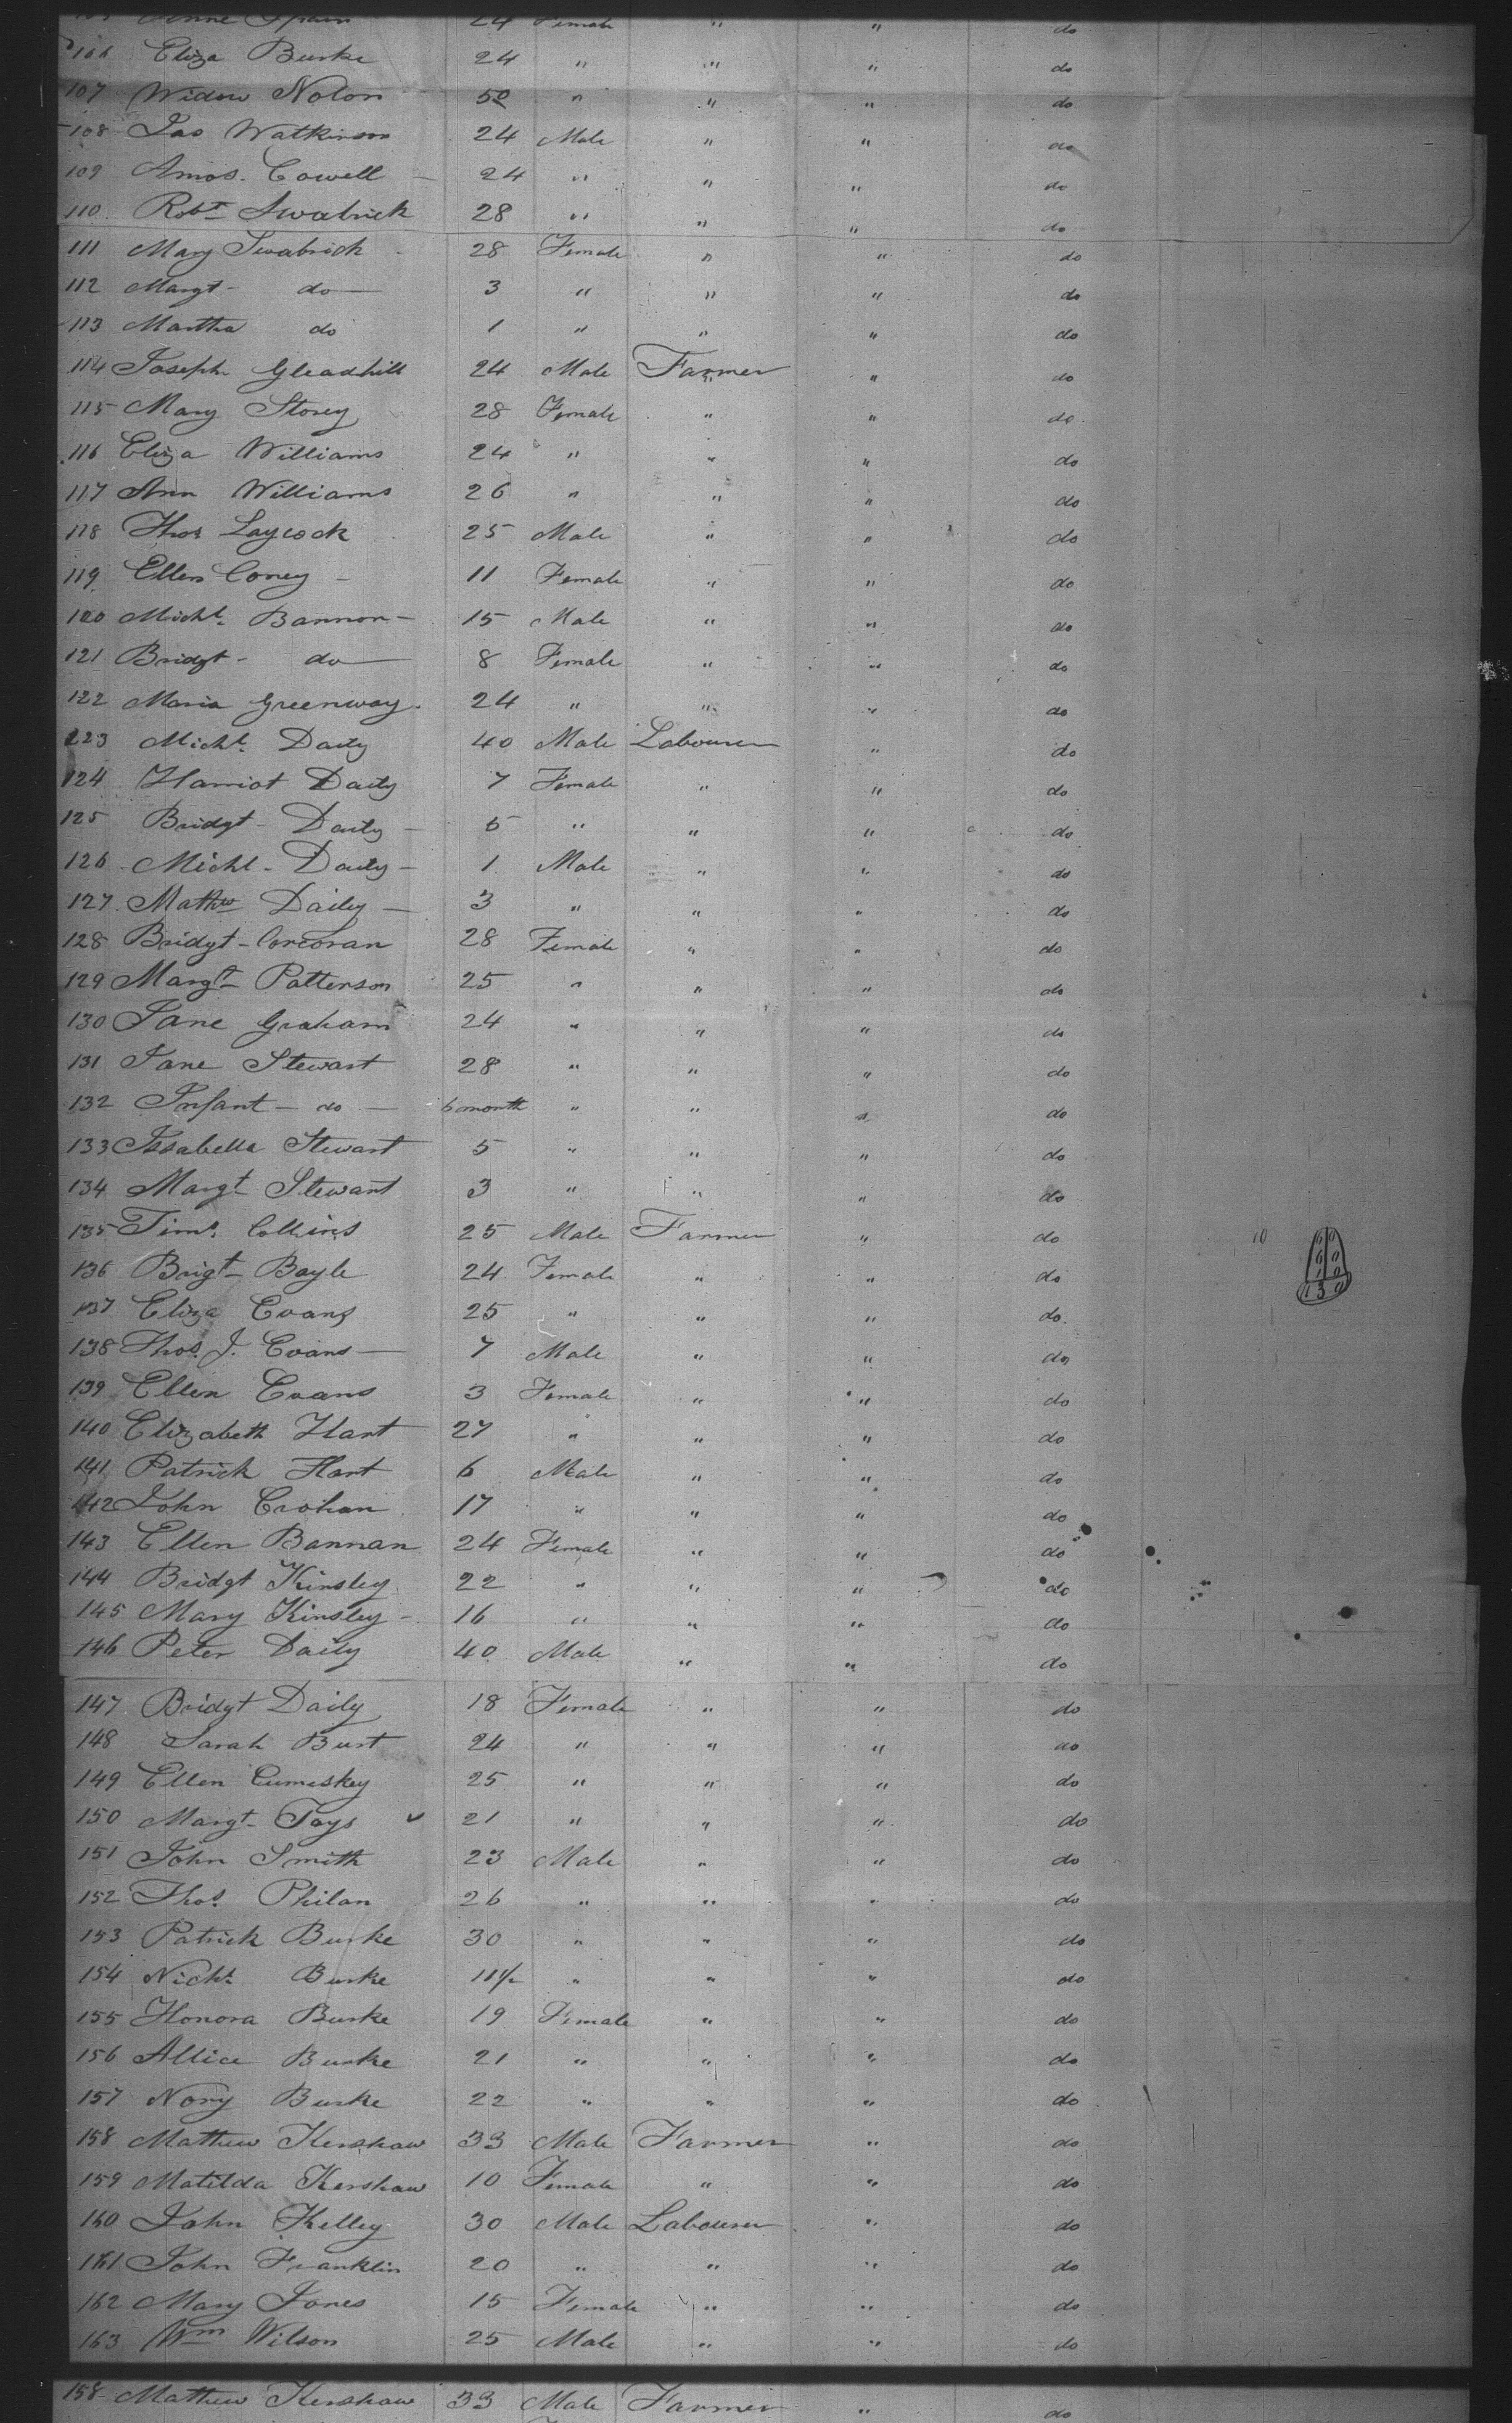 24 Female " " do
106 Eliza Burke 24 " " " do
107 Widow Nolon 50 " " " do
108 Jas Watkinson 24 Male " " do
109 Amos. Cowell - 24 " " " do
110. Robt Swabrick 28 " " " do
111 Mary Swabrick 28 Female " " do
112 Margt - do — 3 " " " do
113 Martha do 1 " " " do
114 Joseph Gleadhill 24 Male Farmer " do
115 Mary Storey 28 Female " " do
116 Eliza Williams 24 " " " do
117 Ann Williams 26 " " " do
118 Thos Laycock 25 Male " " do
119 Ellen Coney - 11 Female " " do
120 Michl. Bannon - 15 Male " " do
121 Bridgt - do — 8 Female " " do
122 Maria Greenway. 24 " " " do
123 Michl. Daily 40 Male Labourer " do
124 Harriot Daily 7 Female " " do
125 Bridgt - Daily - 5 " " " do
126 Michl - Daily - 1 Male " " do
127. Mathw Daily — 3 " " " do
128 Bridgt - Corcoran 28 Female " " do
129 Margt - Patterson 25 " " " do
130 Jane Graham 24 " " " do
131 Jane Stewart 28 " " " do
132 Infant - do — 6 month " " " do
133 Issabella Stewart 5 " " " do
134 Margt Stewart 3 " " " do
135 Timy. Collins 25 Male Farmer " do 10
136 Brigt - Boyle 24 Female " " do
137 Eliza Evans 25 " " " do.
138 Thos. J. Evans — 7 Male " " do
139 Ellen Evans 3 Female " " do
140 Elizabeth Hart 27 " " " do
141 Patrick Hart 6 Male " " do
142 John Crohan 17 " " " do
143 Ellen Bannan 24 Female " " do
144 Bridgt Kinsley 22 " " " do
145 Mary Kinsley - 16 " " " do
146 Peter Daily 40 Male " " do
147 Bridgt Daily 18 Female " " do
148 Sarah Burt 24 " " " do
149 Ellen Cumeskey 25 " " " do
150 Margt - Toys 21 " " " do
151 John Smith 23 Male " " do
152 Thos. Philan 26 " " " do
153 Patrick Burke 30 " " " do
154 Nichs Burke " " " do
155 Honora Burke 19 Female " " do
156 Allice Burke 21 " " " do
157 Nory Burke 22 " " " do
158 Mathew Kershaw 33 Male Farmer " do
159 Matilda Kershaw 10 Female " " do
160 John Kelley 30 Male Labourer " do
161 John Franklin 20 " " " do
162 Mary Jones 15 Female " " do
163 Wm Wilson 25 Male " " do
158 - Mathew Kershaw 33 Male Farmer " do